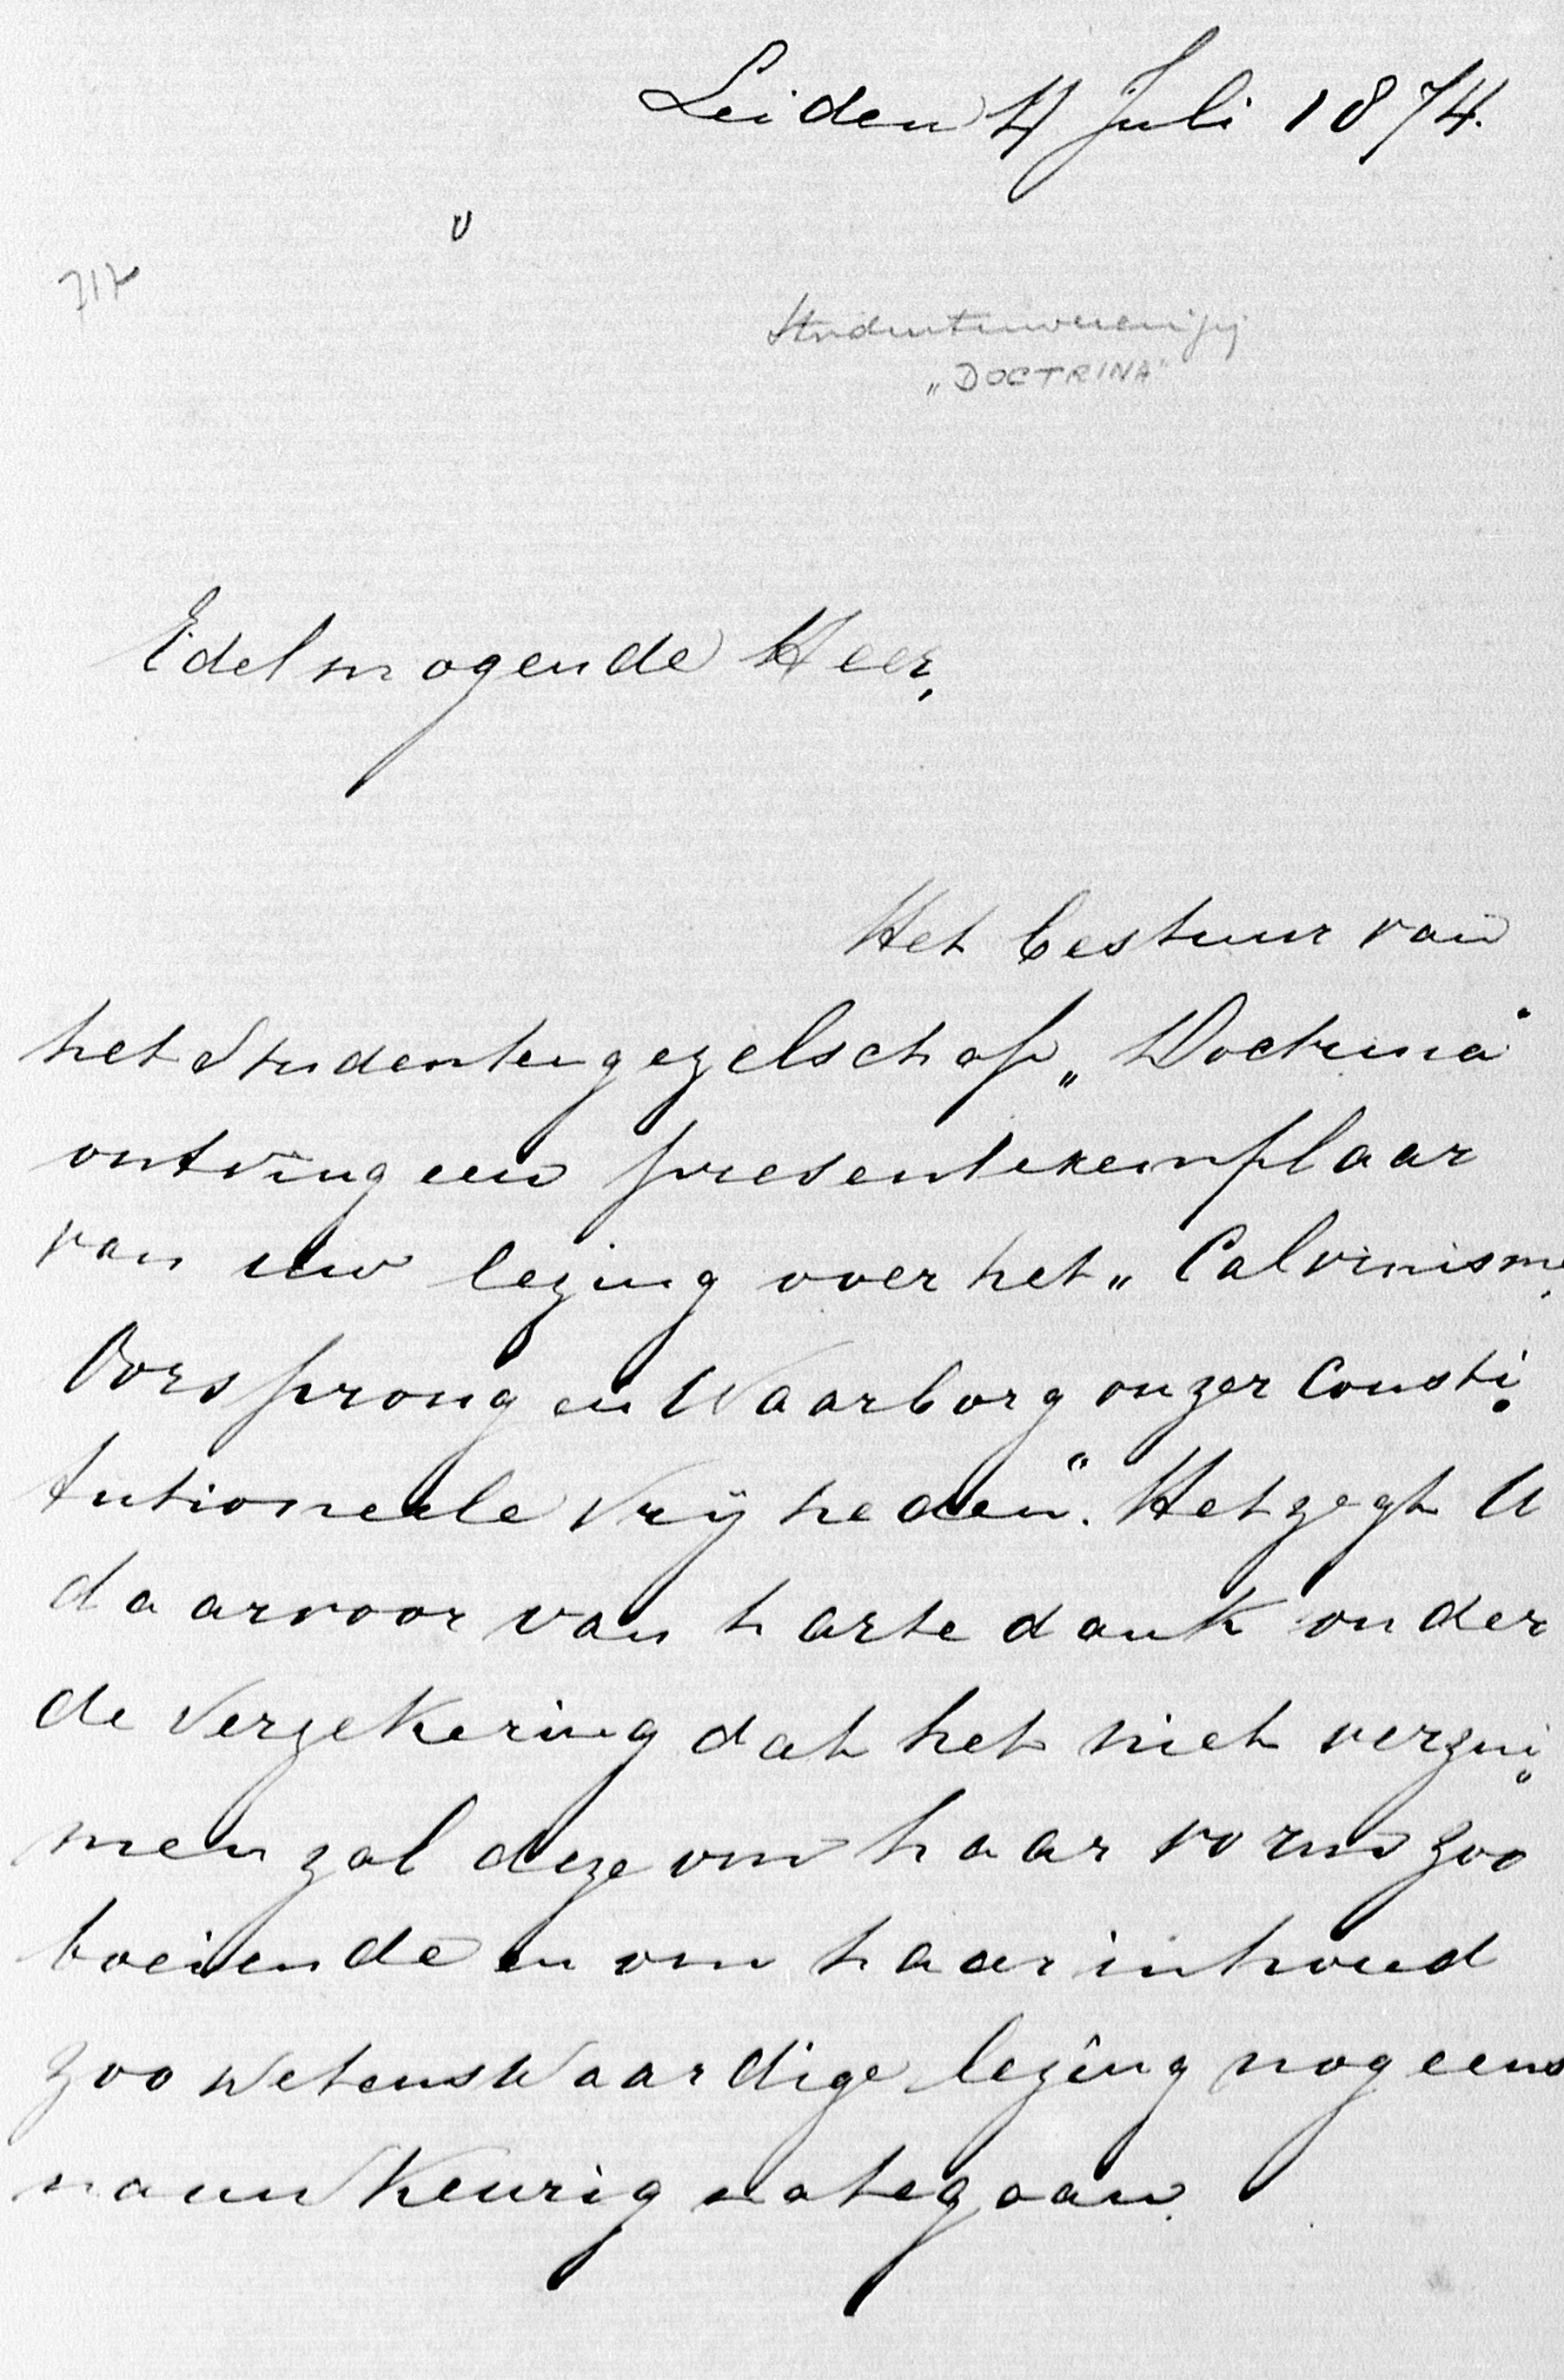 Leiden 4 Juli 1874.
717
Studentenvereniging
„DOCTRINA"
Edelmogende Heer,
Het bestuur van
het Studentengezelschap „Doctrina"
ontving een presentexemplaar
van uw lezing over het „Calvinisme,
Oorsprong en Waarborg onzer Consti:
tutioneele Vrijheden". Het zegt U
daarvoor van harte dank onder
de Verzekering dat het niet verzui:
men zal deze om haar vorm zoo
boeiende en om haar inhoud
zoo wetenswaardige lezing nog eens
naauwkeurig nategaan.